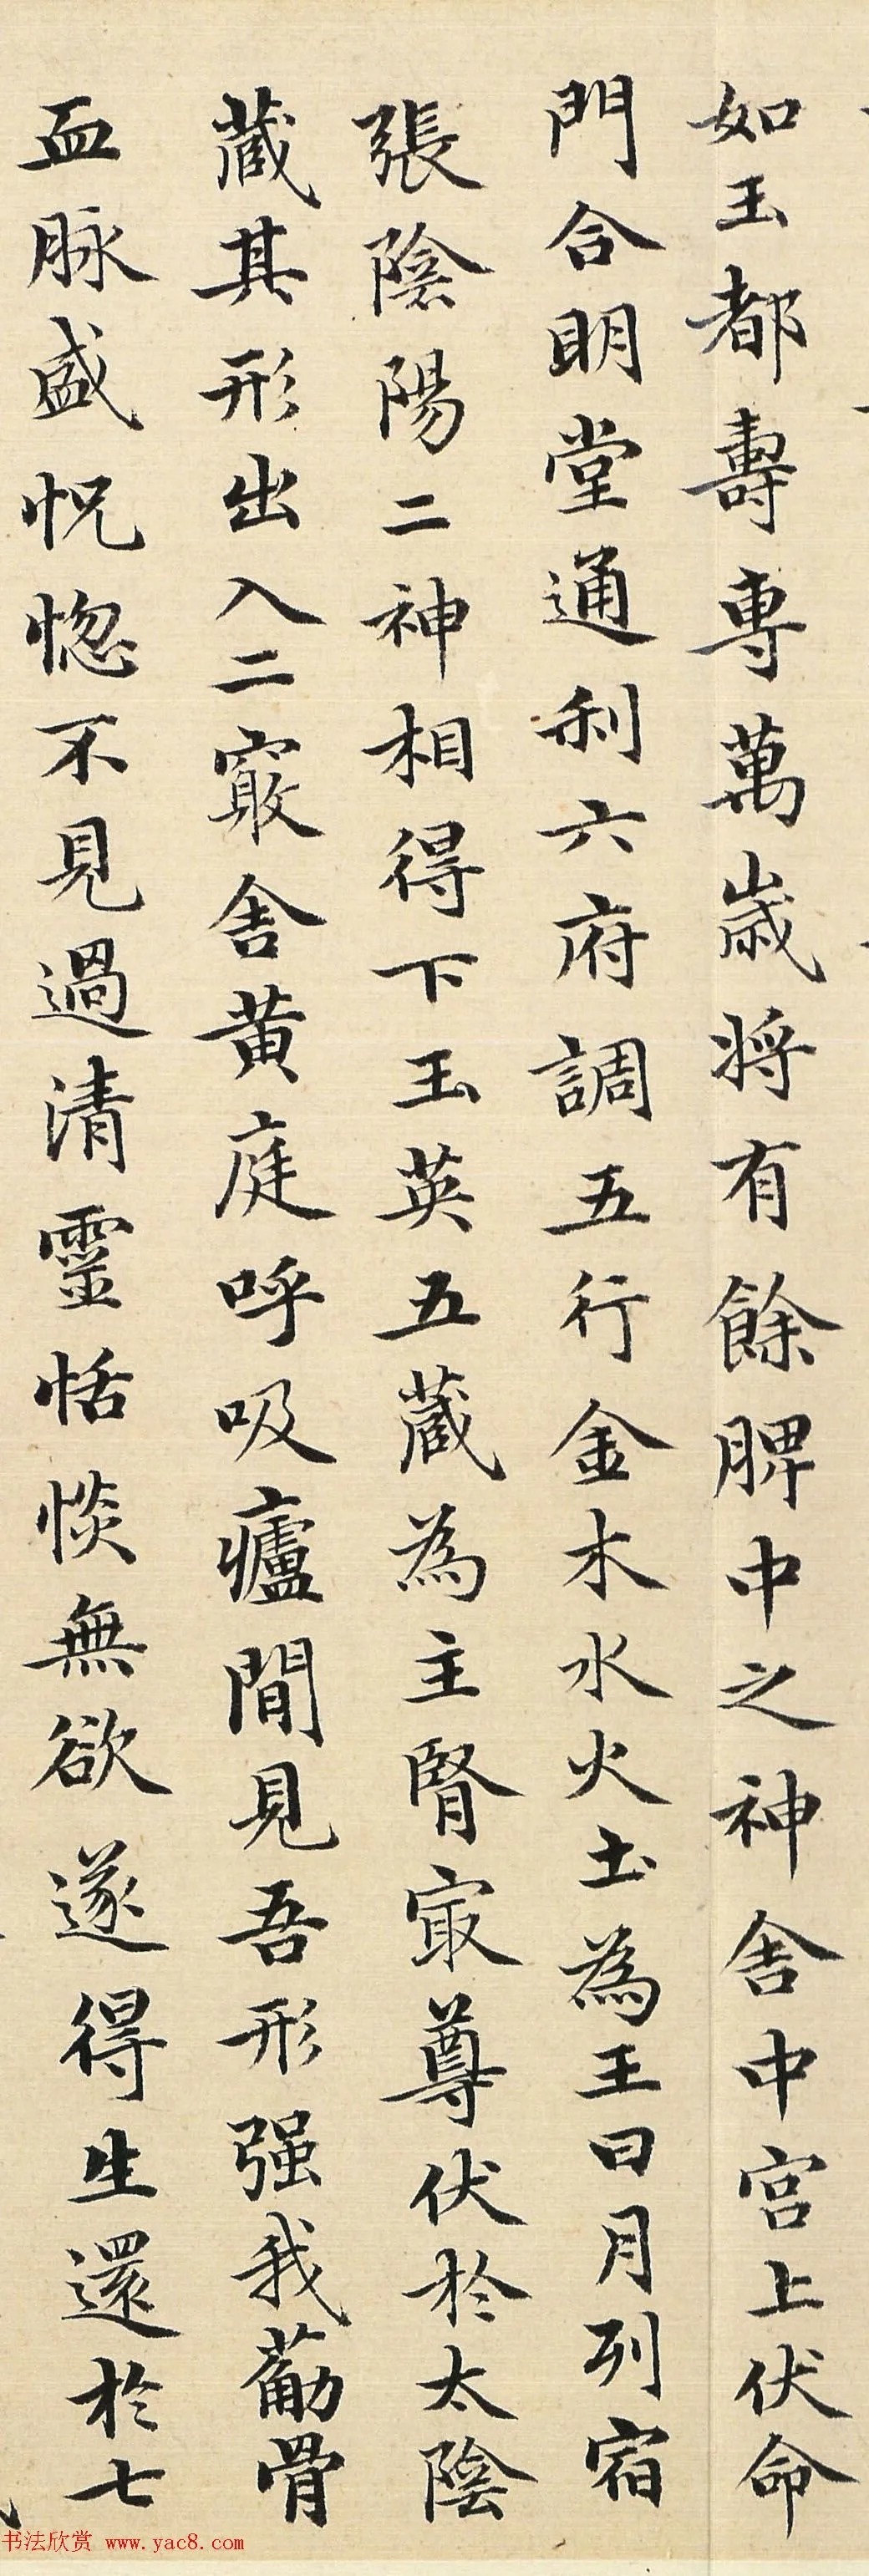 如玉都壽専萬歳将有餘脾中之神舎中宮上伏命
門合明堂通利六府調五行金木水火土為王日月列宿
張陰陽二神相得下玉英五蔵為主腎冣尊伏於太陰
蔵其形出入二竅舎黄庭呼吸廬間見吾形强我筋骨
血脉盛怳惚不見過清靈恬惔無欲遂得生還於七
书法欣赏 www.yac8.com